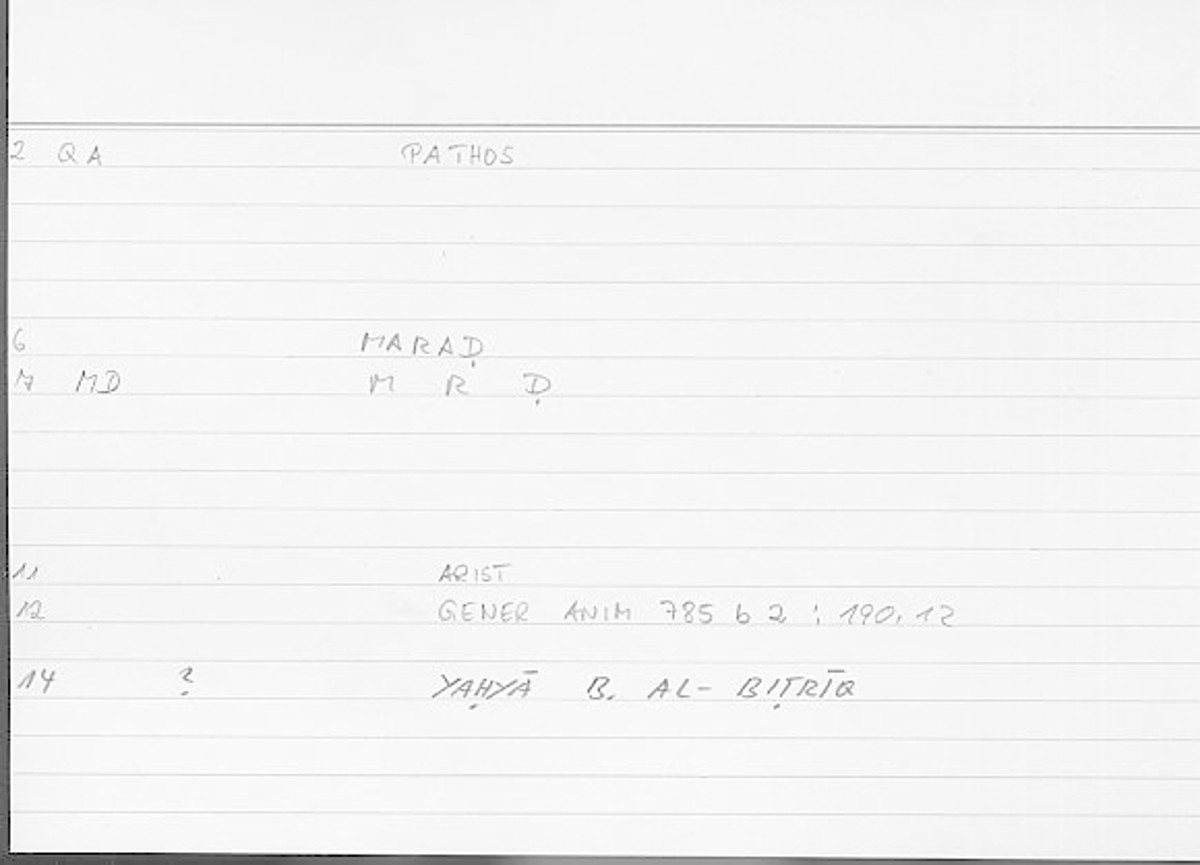 2 QA PATHOS
6 MARAḌ
7 MD M R Ḍ
11 ARIST
12 GENER ANIM 785 b 2 : 190,12
14 ? YAḤYĀ B. AL- BIṬRĪQ